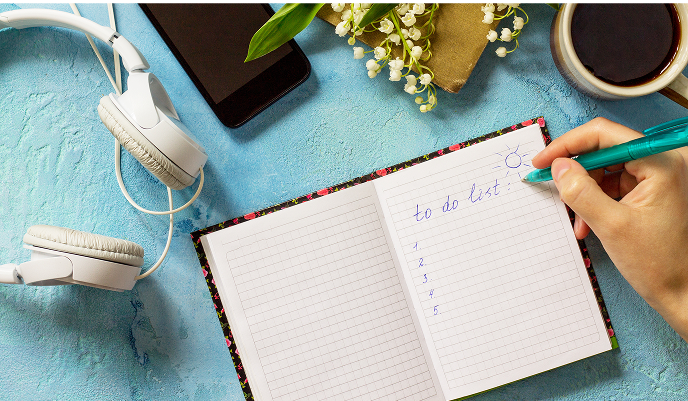 to do list:
1.
2.
3
4
5.